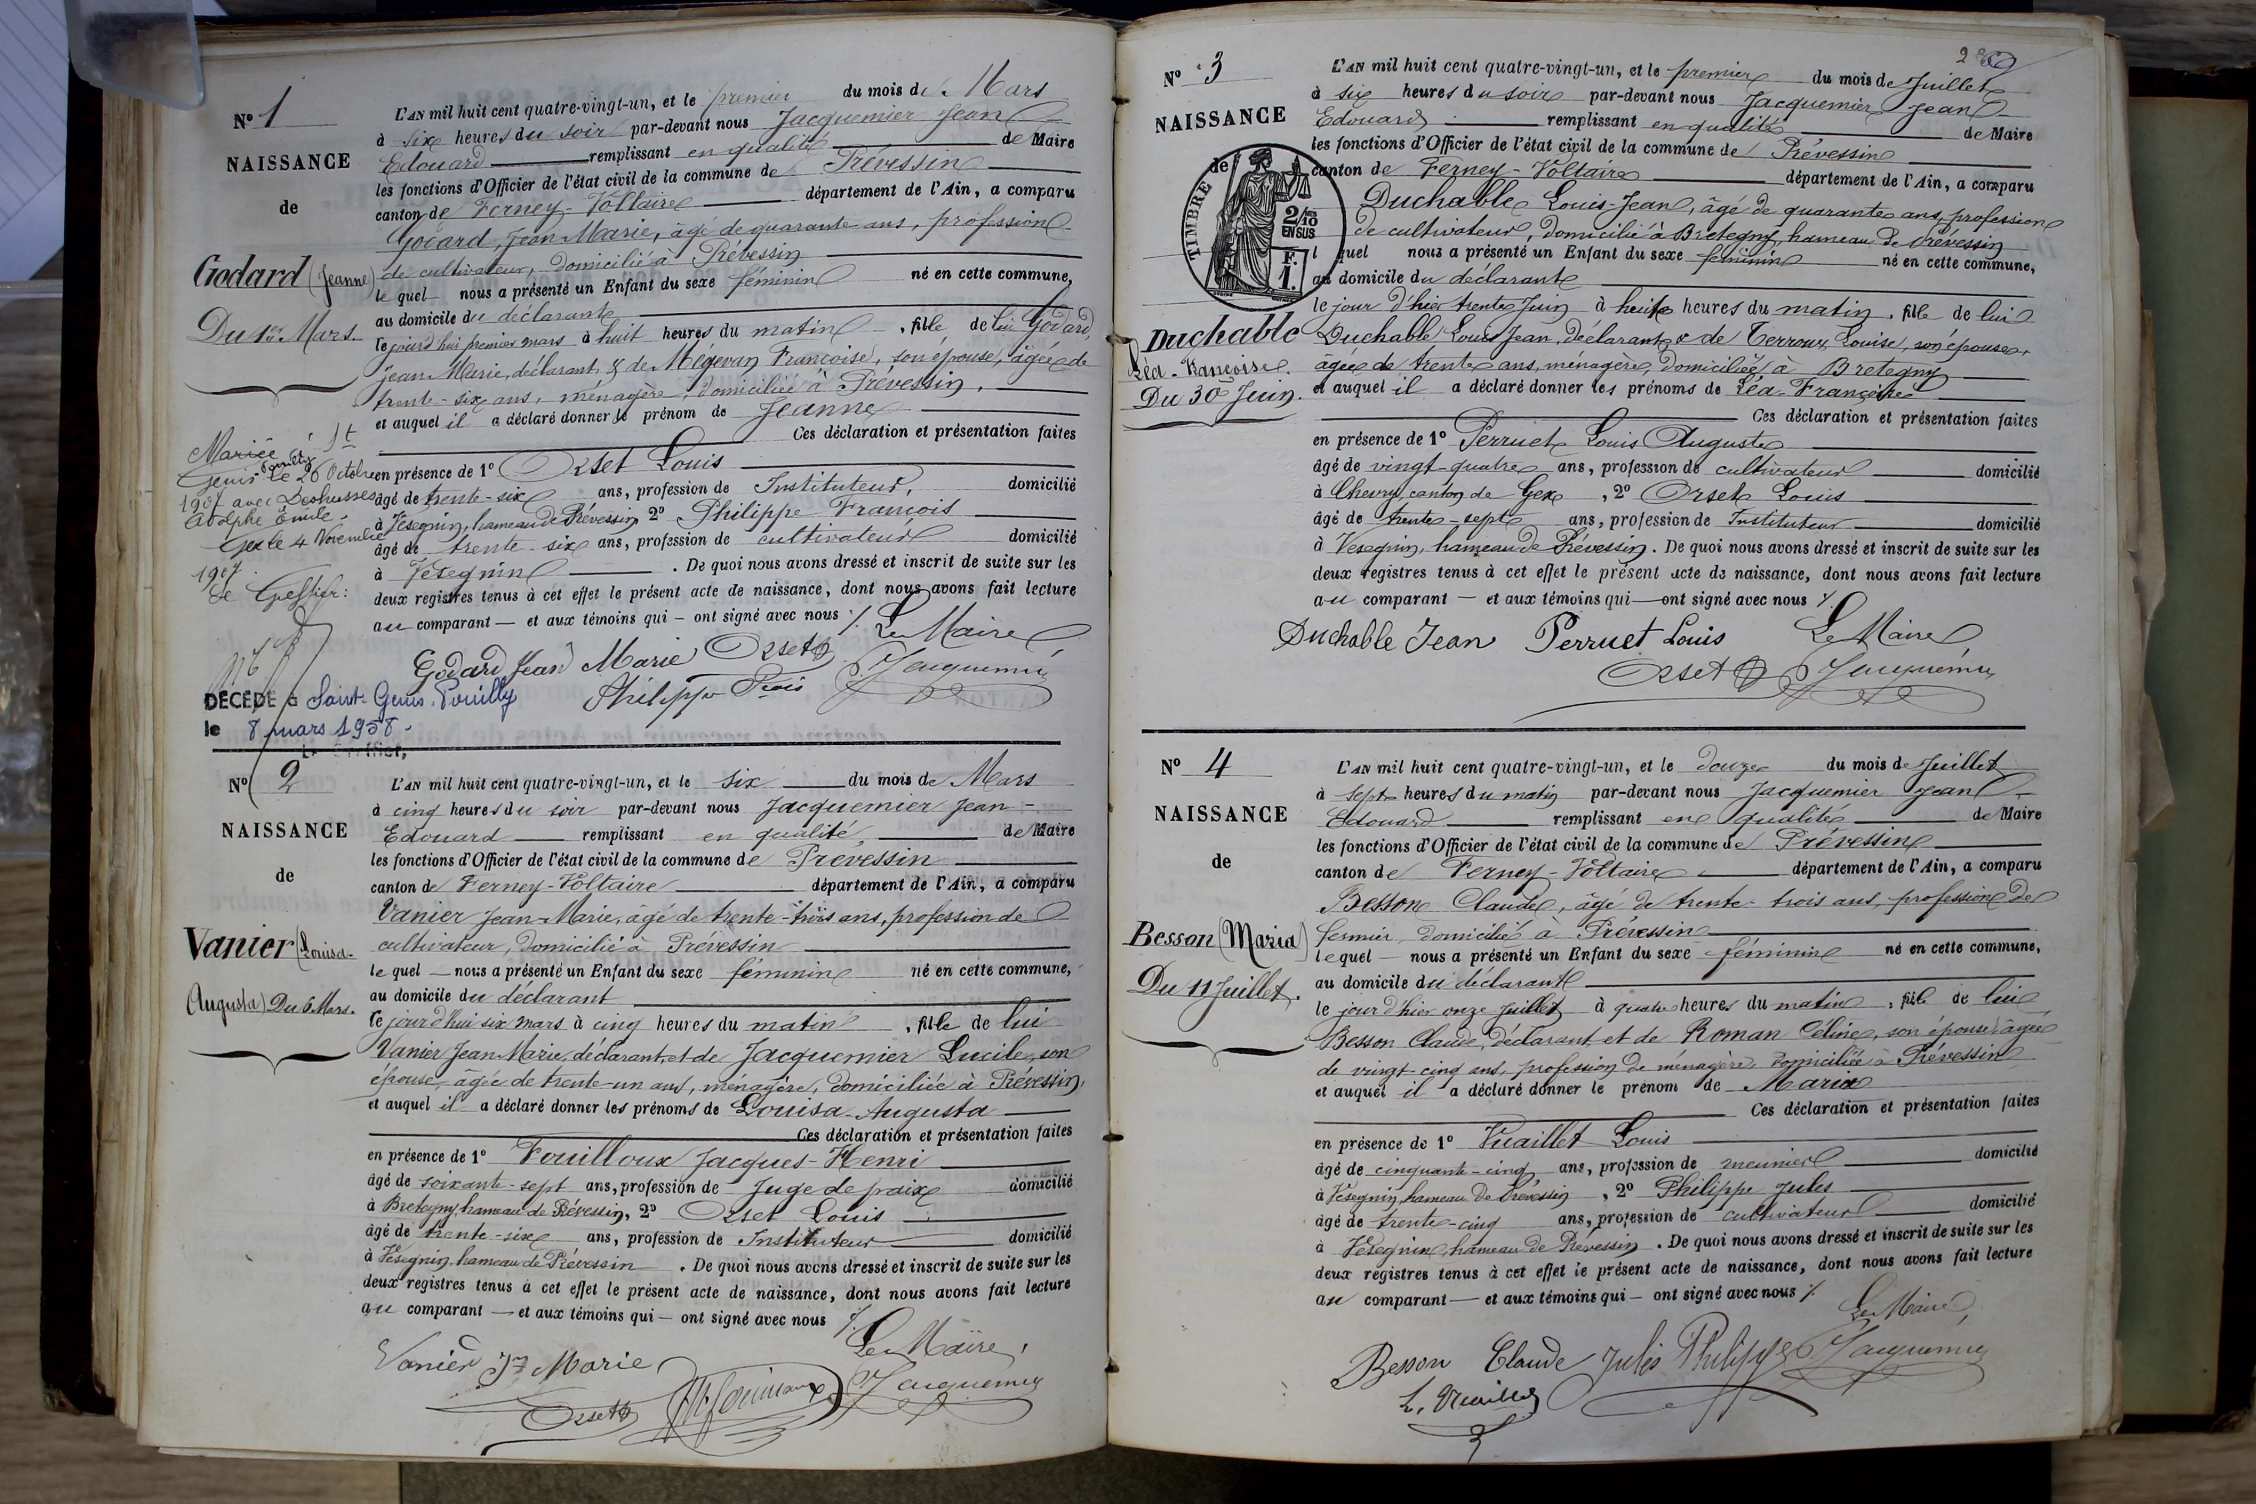 N° 1
NAISSANCE
de
Godard (Jeanne)
Du 1er Mars.
L'AN mil huit cent quatre-vingt-un, et le premier du mois de Mars
à six heures du soir par-devant nous Jacquemier Jean
Edouard remplissant en qualité de Maire
les fonctions d'Officier de l'état civil de la commune de Prévessin
canton de Ferney-Voltaire département de l'Ain, a comparu
Godard, Jean-Marie, âgé de quarante ans, profession
de cultivateur, domicilié à Prévessin
lequel nous a présenté un Enfant du sexe féminin né en cette commune,
au domicile du déclarant
le jourd'hui premier mars à huit heures du matin, fille de lui Godard,
Jean-Marie, déclarant, & de Mégevan Françoise, son épouse, âgée de
trente-six ans, ménagère, domiciliée à Prévessin.
et auquel il a déclaré donner le prénom de Jeanne
Ces déclaration et présentation faites
en présence de 1° Orset Louis
âgé de trente-six ans, profession de Instituteur, domicilié
à Vésegnin, hameau de Prévessin 2° Philippe François
âgé de trente-six ans, profession de cultivateur domicilié
à Vésegnin. De quoi nous avons dressé et inscrit de suite sur les
deux registres tenus à cet effet le présent acte de naissance, dont nous avons fait lecture
au comparant — et aux témoins qui — ont signé avec nous ./. Le Maire
Godard Jean Marie Orset Jacquemier
Philippe Fçois
Mariée à St
Genis-Pouilly le 26 Octobre
1907 avec Deshusses
Adolphe Émile.
Gex le 4 Novembre
1907.
Le Greffier:
DÉCÉDÉ à Saint-Genis-Pouilly
le 8 mars 1958.
Le Greffier,
N° 2
NAISSANCE
de
Vanier (Louisa-
Augusta) Du 6 Mars.
L'AN mil huit cent quatre-vingt-un, et le six du mois de Mars
à cinq heures du soir par-devant nous Jacquemier Jean-
Edouard remplissant en qualité de Maire
les fonctions d'Officier de l'état civil de la commune de Prévessin
canton de Ferney-Voltaire département de l'Ain, a comparu
Vanier Jean-Marie, âgé de trente-trois ans, profession de
cultivateur, domicilié à Prévessin
lequel — nous a présenté un Enfant du sexe féminin né en cette commune,
au domicile du déclarant
le jourd'hui six mars à cinq heures du matin, fille de lui
Vanier Jean-Marie, déclarant, et de Jacquemier Lucile, son
épouse, âgée de trente-un ans, ménagère, domiciliée à Prévessin,
et auquel il a déclaré donner les prénoms de Louisa-Augusta
Ces déclaration et présentation faites
en présence de 1° Fouilloux Jacques-Henri
âgé de soixante-sept ans, profession de Juge de paix domicilié
à Bretegny, hameau de Prévessin, 2° Orset Louis
âgé de trente-six ans, profession de Instituteur domicilié
à Vésegnin, hameau de Prévessin. De quoi nous avons dressé et inscrit de suite sur les
deux registres tenus à cet effet le présent acte de naissance, dont nous avons fait lecture
au comparant — et aux témoins qui — ont signé avec nous ./.
Le Maire,
Vanier Jn Marie
Orset Jacquemier
N° 3
NAISSANCE
de
TIMBRE
2/10
EN SUS
F.
1.
Duchable
Léa-Françoise.
Du 30 Juin.
L'AN mil huit cent quatre-vingt-un, et le premier du mois de Juillet
à six heures du soir par-devant nous Jacquemier Jean
Edouard remplissant en qualité de Maire
les fonctions d'Officier de l'état civil de la commune de Prévessin
canton de Ferney-Voltaire département de l'Ain, a comparu
Duchable Louis-Jean, âgé de quarante ans, profession
de cultivateur, domicilié à Bretegny, hameau de Prévessin
lequel nous a présenté un Enfant du sexe féminin né en cette commune,
au domicile du déclarant
le jour d'hier trente Juin à huit heures du matin, fille de lui
Duchable Louis Jean, déclarant, & de Terroux Louise, son épouse,
âgée de trente ans, ménagère, domiciliée à Bretegny
et auquel il a déclaré donner les prénoms de Léa-Françoise
Ces déclaration et présentation faites
en présence de 1° Perruet Louis Auguste
âgé de vingt-quatre ans, profession de cultivateur domicilié
à Chevry, canton de Gex, 2° Orset Louis
âgé de trente-sept ans, profession de Instituteur domicilié
à Vesegnin, hameau de Prévessin. De quoi nous avons dressé et inscrit de suite sur les
deux registres tenus à cet effet le présent acte de naissance, dont nous avons fait lecture
au comparant — et aux témoins qui — ont signé avec nous ./.
Duchable Jean Perruet Louis Le Maire
Orset Jacquemier
N° 4
NAISSANCE
de
Besson (Maria)
Du 11 Juillet.
L'AN mil huit cent quatre-vingt-un, et le douze du mois de Juillet
à sept heures du matin par-devant nous Jacquemier Jean
Edouard remplissant en qualité de Maire
les fonctions d'Officier de l'état civil de la commune de Prévessin
canton de Ferney-Voltaire département de l'Ain, a comparu
Besson Claude, âgé de trente-trois ans, profession de
fermier, domicilié à Prévessin
lequel — nous a présenté un Enfant du sexe féminin né en cette commune,
au domicile du déclarant
le jour d'hier onze Juillet à quatre heures du matin, fille de lui
Besson Claude, déclarant, et de Roman Céline, son épouse, âgée
de vingt-cinq ans, profession de ménagère, domiciliée à Prévessin
et auquel il a déclaré donner le prénom de Maria
Ces déclaration et présentation faites
en présence de 1° Vuaillet Louis
âgé de cinquante-cinq ans, profession de meunier domicilié
à Vésegnin, hameau de Prévessin, 2° Philippe Jules
âgé de trente-cinq ans, profession de cultivateur domicilié
à Vésegnin, hameau de Prévessin. De quoi nous avons dressé et inscrit de suite sur les
deux registres tenus à cet effet le présent acte de naissance, dont nous avons fait lecture
au comparant — et aux témoins qui — ont signé avec nous ./.
Le Maire,
Besson Claude Jules Philippe Jacquemier
L. Vuaillet